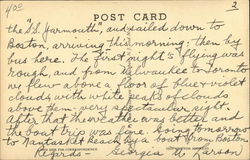 400
2
POST CARD
the "S.S. Yarmouth", and sailed down to
Boston, arriving this morning; then by
bus here. The first night's flying was
rough, and from Milwaukee to Toronto
we flew above a floor of blue-violet
clouds with white peaks of clouds
above them - very spectacular sight.
After that the weather was better and
the boat trip was fine. Going tomorrow
to Nantasket Beach by a boat from Boston.
Regards - Georgia M. Larson